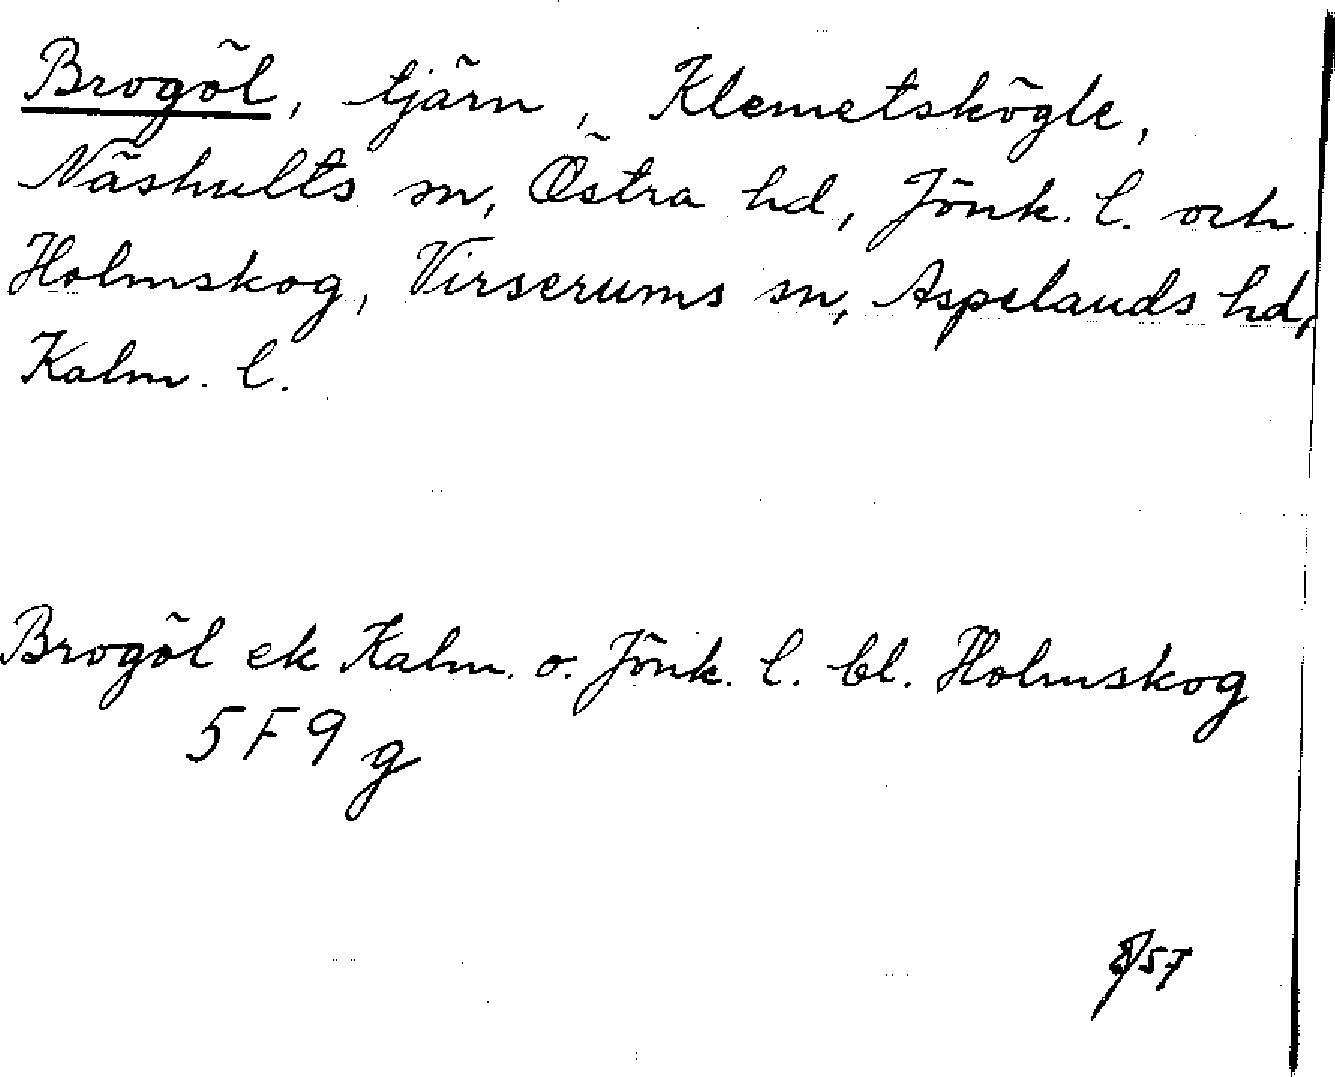 Brogöl, tjärn, Klemetskögle,
Näshults sn, Östra hd, Jönk. l. och
Holmskog, Virserums sn, Aspelands hd,
Kalm. l.
Brogöl ek Kalm. o. Jönk. l. bl. Holmskog
5F9g